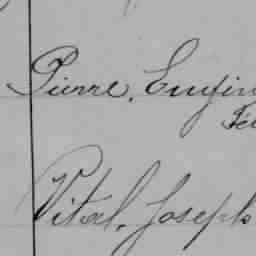 Pierre, Eugèn
Fé
Vital, Joseph